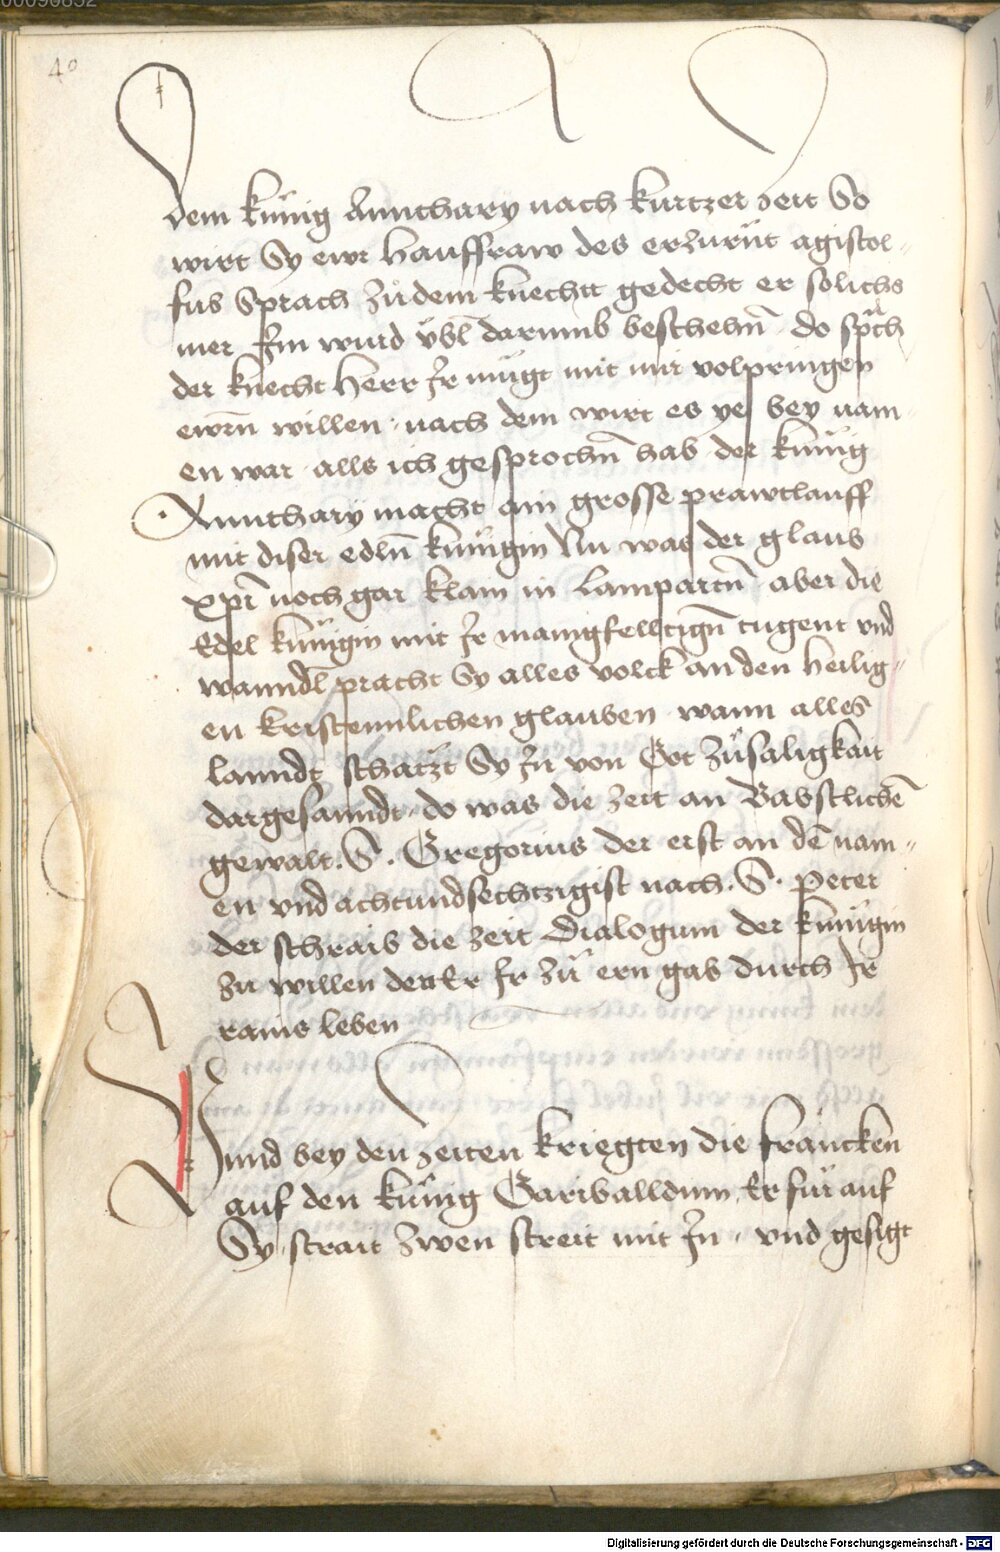 40
dem künig Annthary nach kurtzer zeit So
wirt Sy ewr hauffraw des erzürnt agistol-
fus Sprach zů dem knechtt gedecht er solichs
mer Im wurd vbl darumb beschehn̄ do sprach
der knecht Herr Ir mügt mit mir volpringen
ewrn̄ willen · nach dem wirt es ye bey nam-
en war · alls ich gesprochn̄ hab der künig
Annthary macht ain grosse prawtlauff
mit diser edln̄ künigin Nu was der glaub
xpi noch gar klain in Lampartn̄ · aber die
Edel künigin mit Ir manigfelltign̄ tugent vnd
wanndl pracht Sy alles volck an den heilig-
en kristennlichen glauben · wann alles
lanndt schatzt Sy In von Got zů saligkait
dargesanndt · do was die zeit an Babstlichē
gewalt · S · Gregorius der erst an dē nam-
en vnd achtundsechtzigist nach · S · Peter
der schraib die zeit Dialogum der künigin
zu willen den Er Ir zů ern gab durch Ir
rains leben
Vnnd bey den zeiten kriegten die francken
auf den künig Gariballdum, Er für auf
Sy, strait zwen streit mit In · vnd gesigt
Digitalisierung gefördert durch die Deutsche Forschungsgemeinschaft - DFG